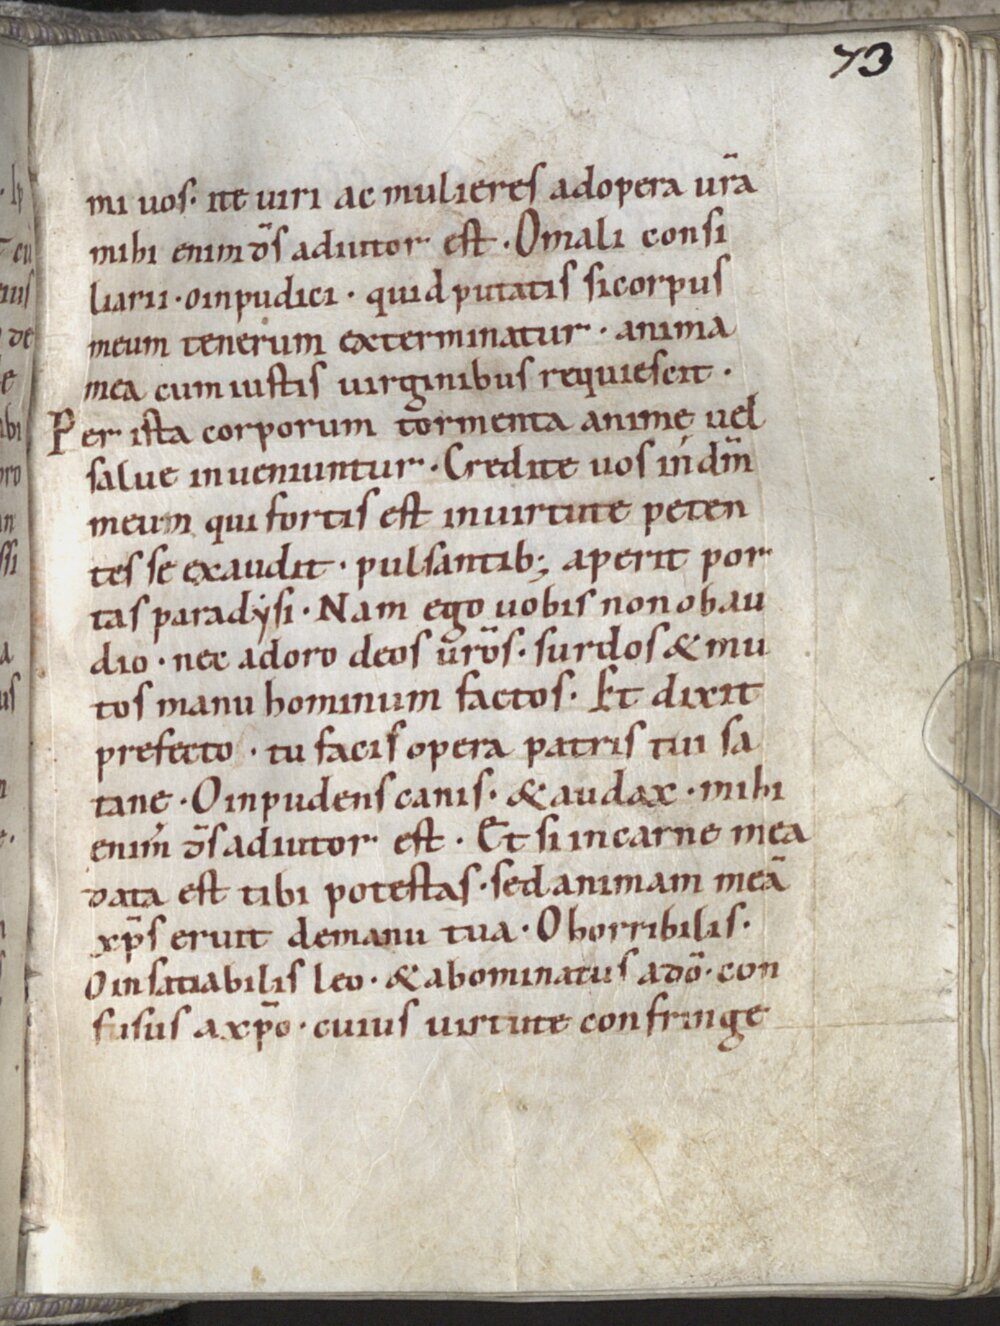 73
mi uos· ite uiri ac mulieres adopera ur̄a
mihi enim d̄s adiutor est · O mali consi
liarii · oinpudici · quid putatis sicorpus
meum tenerum exterminatur · anima
mea cum iustis uirginibus requiescit ·
Per ista corporum tormenta animę uel
salue inueniuntur · Credite uos in dn̄m
meum qui fortis est inuirtute peten
tes se exaudit · pulsantib; aperit por
tas paradẏsi · Nam ego uobis non obau
dio · nec adoro deos ur̄os · surdos & mu
tos manu hominum factos · Et dixit
prefecto · tu facis opera patris tui sa
tanę · O inpudens canis · & audax · mihi
enim d̄s adiutor est · Et si incarne mea
data est tibi potestas · sed animam meā
xp̄s eruit demanu tua · O horribilis ·
O insatiabilis leo · & abominatus a dō · con
fusus axp̄o · cuius uirtute confringe